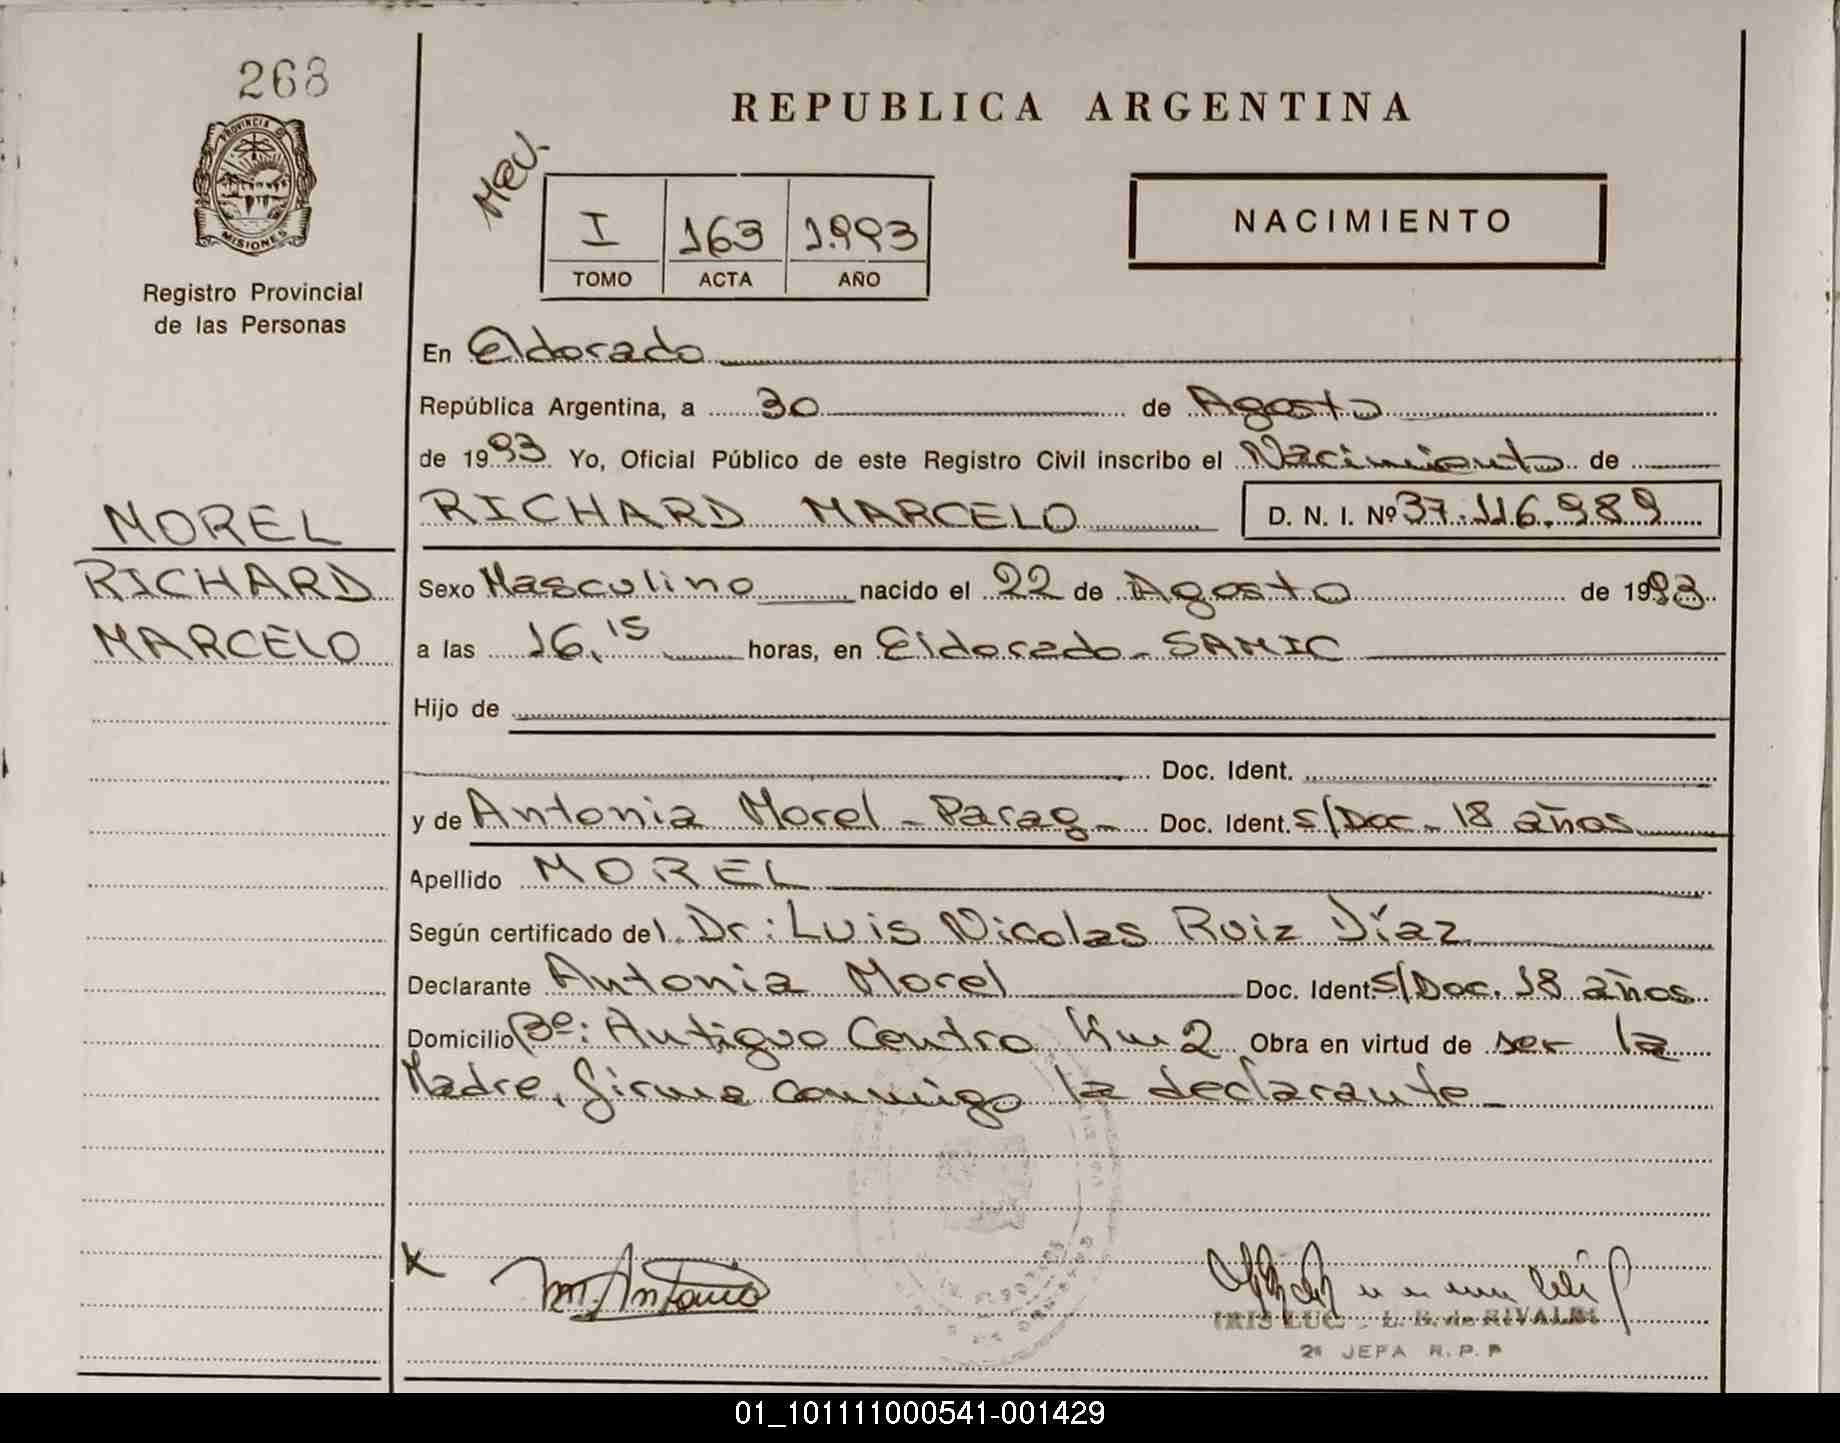 268
PROVINCIA DE
MISIONES
Registro Provincial
de las Personas
MOREL
RICHARD
MARCELO
REPUBLICA ARGENTINA
I 163 1.993
TOMO ACTA AÑO
NACIMIENTO
En Eldorado
República Argentina, a 30 de Agosto
de 1993 Yo, Oficial Público de este Registro Civil inscribo el Nacimiento de
RICHARD MARCELO D. N. I. Nº 37.116.989
Sexo Masculino nacido el 22 de Agosto de 1993
a las 16,15 horas, en Eldorado - SAMIC
Hijo de
Doc. Ident.
y de Antonia Morel - Parag - Doc. Ident. s/Doc - 18 años
Apellido MOREL
Según certificado del Dr: Luis Nicolas Ruiz Díaz
Declarante Antonia Morel Doc. Ident. S/Doc. 18 años
Domicilio Bº: Antiguo Centro Km 2 Obra en virtud de ser la
Madre, firma conmigo la declarante -
X m. Antonia
IRIS LUC L. B. de RIVALDI
2ª JEFA R. P. P
01_101111000541-001429